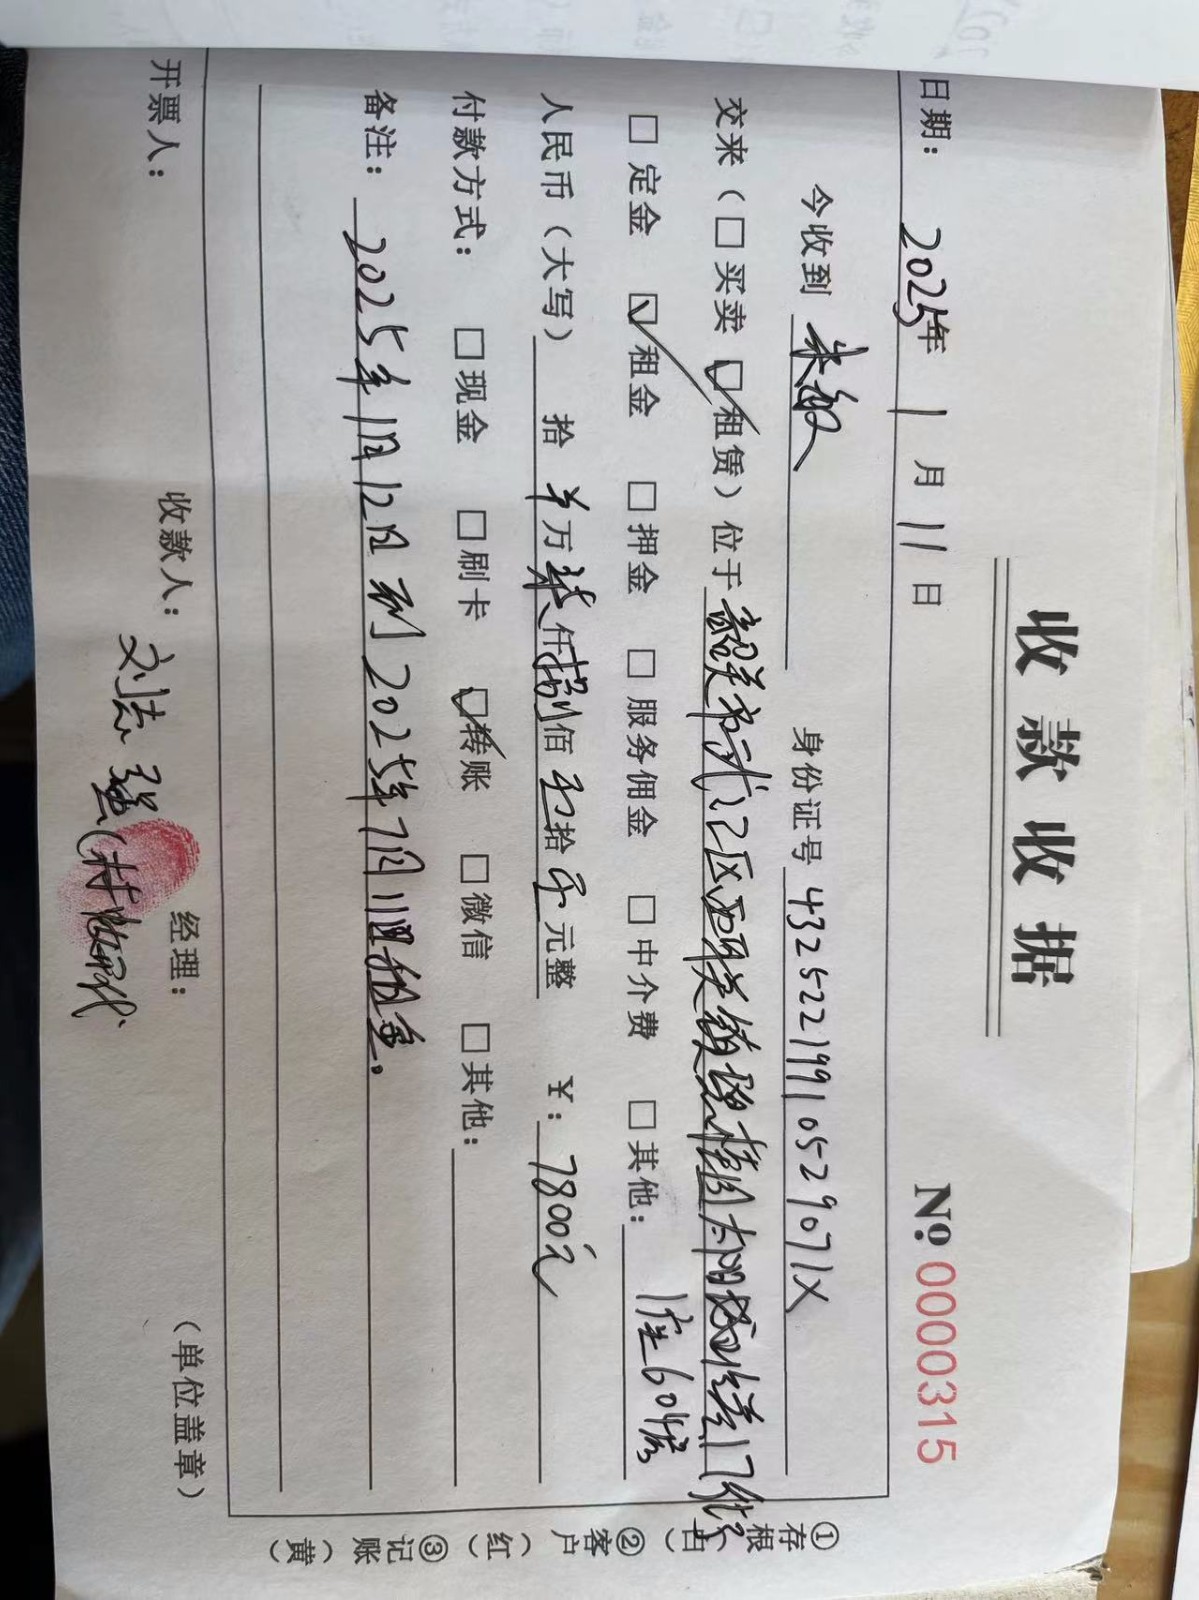 收款收据
No. 0000315
日期： 2025年 1 月 11 日
今收到 朱敏 身份证号 43252219910529071X
交来（□买卖 ☑租赁）位于 韶关市武江区西联镇 太阳城 17
1座604房
□定金 ☑租金 □押金 □服务佣金 □中介费 □其他：
人民币（大写） 拾 万柒仟捌佰 拾 元整 ￥：7800元
付款方式： □现金 □刷卡 ☑转账 □微信 □其他：
备注： 2025年1月12日到2025年7月11日租金。
开票人： 收款人： 刘志强 经理： （单位盖章）
①存根（白） ②客户（红） ③记账（黄）